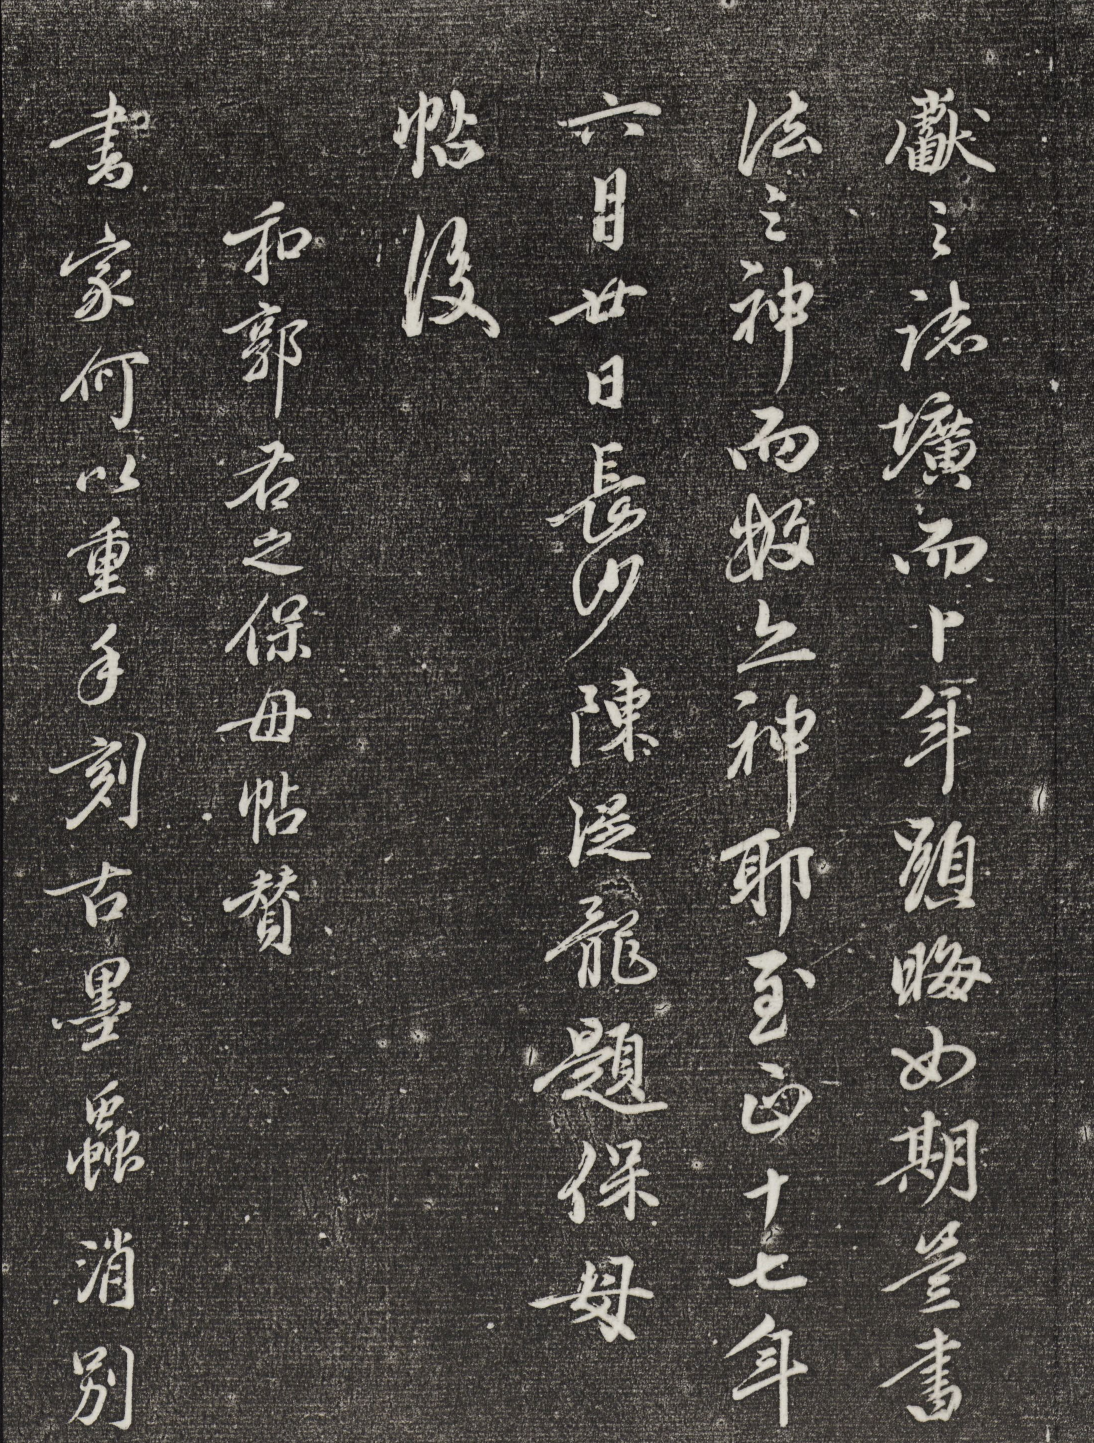 獻之誌壙而卜年顯晦如期豈書
法之神而數亦神耶至正十七年
六月廿日長沙陳從龍題保母
帖後
和郭右之保母帖贊
書家何以重手刻古墨蟲消別